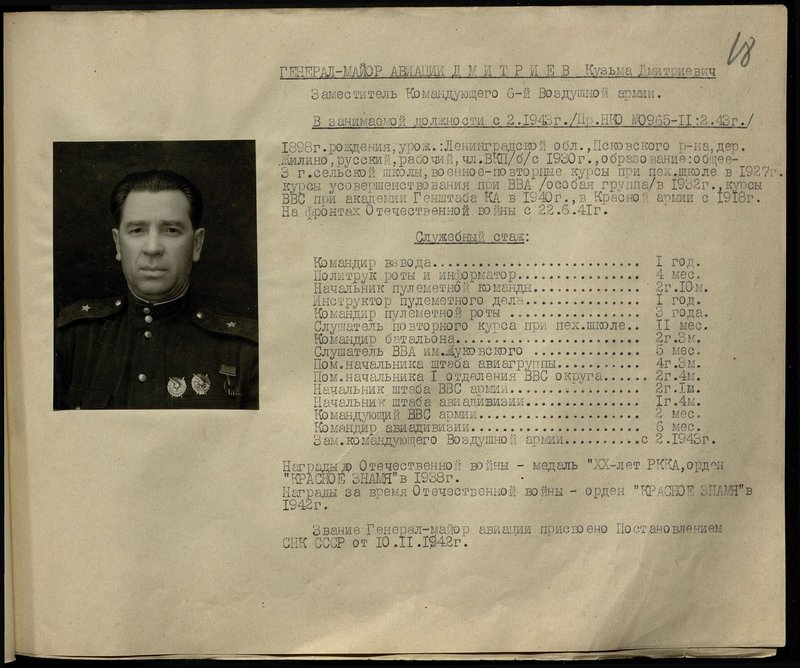 18
ГЕНЕРАЛ-МАЙОР АВИАЦИИ Д М И Т Р И Е В Кузьма Дмитриевич
Заместитель Командующего 6-й Воздушной армии.
В занимаемой должности с 2.1943г./Пр.НКО №0965-II:2.43г./
1898г.рождения,урож.:Ленинградской обл.,Псковского р-на,дер.
Жилино,русский,рабочий,чл.ВКП/б/с 1930г.,образование:общее-
3 г.сельской школы,военное-повторные курсы при пех.школе в 1927г.
курсы усовершенствования при ВВА /особая группа/в 1932г.,курсы
ВВС при академии Генштаба КА в 1940г.,в Красной армии с 1918г.
На фронтах Отечественной войны с 22.6.41г.
Служебный стаж:
Командир взвода........................... I год.
Политрук роты и информатор................ 4 мес.
Начальник пулеметной команды.............. 2г.10м.
Инструктор пулеметного дела............... I год.
Командир пулеметной роты ................. 3 года.
Слушатель повторного курса при пех.школе.. II мес.
Командир батальона........................ 2г.3м.
Слушатель ВВА им.Жуковского .............. 5 мес.
Пом.начальника штаба авиагруппы........... 4г.3м.
Пом.начальника I отделения ВВС округа...... 2г.4м.
Начальник штаба ВВС армии................. 2г.1м.
Начальник штаба авиадивизии............... 1г.4м.
Командующий ВВС армии..................... 2 мес.
Командир авиадивизии...................... 6 мес.
Зам.командующего Воздушной армии..........с 2.1943г.
Награды до Отечественной войны - медаль "XX-лет РККА,орден
"КРАСНОЕ ЗНАМЯ"в 1938г.
Награды за время Отечественной войны - орден "КРАСНОЕ ЗНАМЯ"в
1942г.
Звание Генерал-майор авиации присвоено Постановлением
СНК СССР от 10.II.1942г.